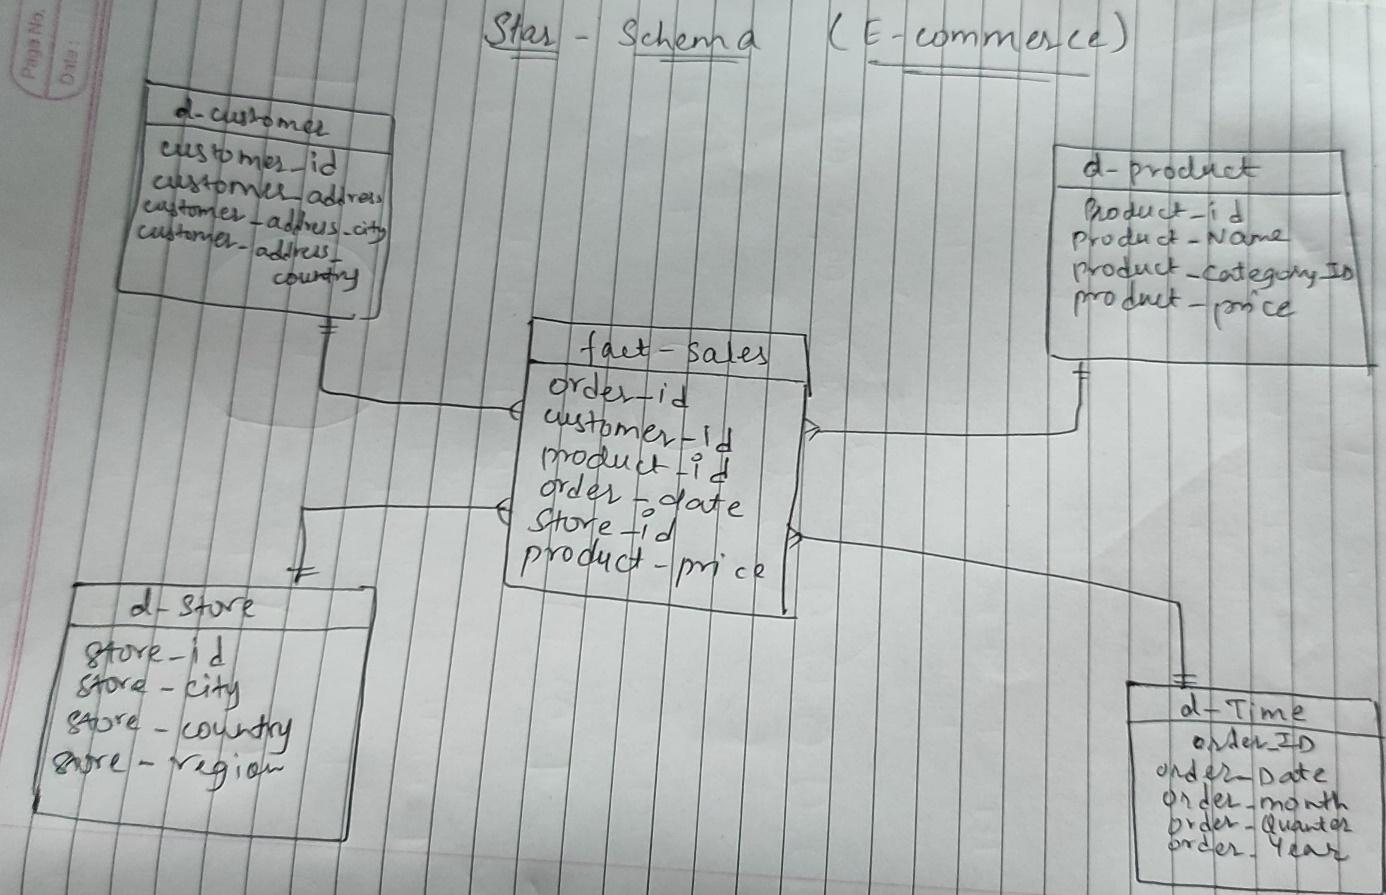 Page No.
Date:
Star - Schema (E-commerce)
d-customer
customer_id
customer_address
customer_address_city
customer_address_
country
d-product
Product_id
product_Name
product_CategoryID
product_price
fact_sales
order_id
customer_id
product_id
order_date
store_id
product_price
d-store
store_id
store_city
store_country
store_region
d-Time
order_ID
order_Date
order_month
order_Quarter
order_Year